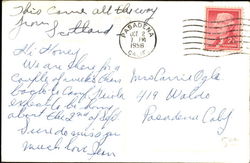 This came all the way
from Scotland
PASADENA
OCT 2
PM
1956
CALIF
Hi Honey
We are here for a
couple of weeks then
Mrs Carrie Ogle
back to Camp
419 Waldo
expect to be home
about the 2nd of
Pasadena Calif
Sure do miss you
much love Jean